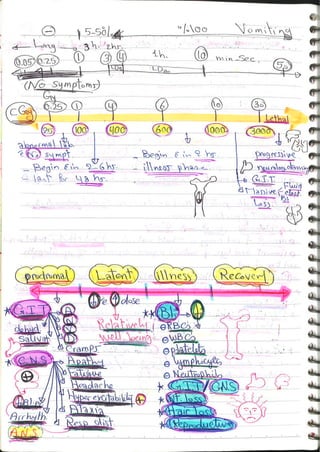 5-50% %100 Vomiting
Long 3h 2hr 1h. 10 min-Sec.
0.05 0.25 1 3 4 50
LD50
(No Symptoms)
Gy 0.25 1 4 6 10 30
Lethal
CGy
25 100 400 600 1000 3000
abnormal lab
No sympt
- Begin in 2-6 hr
- last for 48 hr
- Begin in 2 hr
- illness phase
progressive
neurological
G.I.T
Massive Fluid
Loss
prodromal Latent Illness Recovery
dose
G.I.T
dehyd
Salivat
Cramps
CNS
Apathy
Fatigue
Headache
Hyperexcitability
Ataxia
Resp. dist
Arrhyth
ANS
Relatively
Well being
Bl.
RBCs
WBCs
platelets
lymphocytes
Neutrophils
GIT/CNS
wt loss
Hair loss
Reproductive